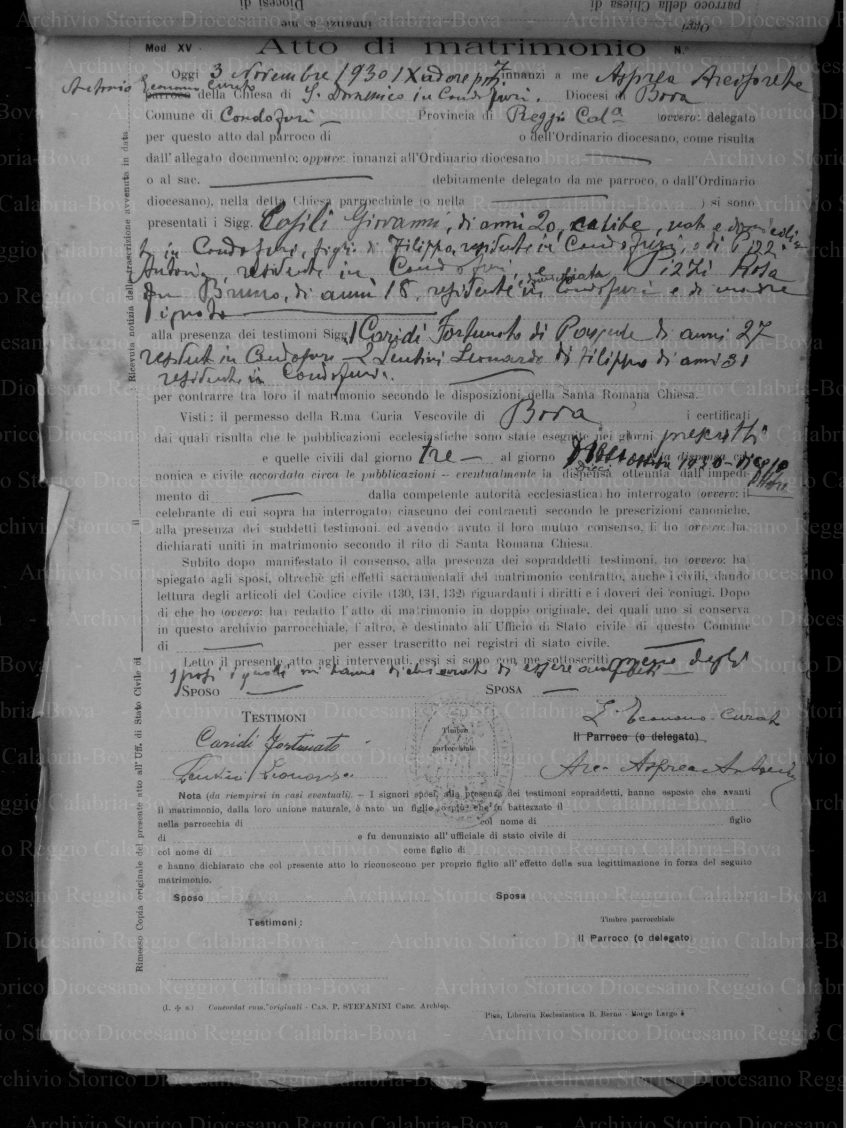 parroco della Chiesa di
Diocesi di
Oggi
innanzi a me
Mod XV. Atto di matrimonio N.°
Oggi 3 Novembre 1930 IX ad ore innanzi a me Asprea Arciprete
Antonio Economo Curato
parroco della Chiesa di S. Domenico in Condofuri. Diocesi di Bova
Comune di Condofuri — Provincia di Reggio Cal.a (ovvero: delegato
per questo atto dal parroco di o dell'Ordinario diocesano, come risulta
dall'allegato documento; oppure: innanzi all'Ordinario diocesano
o al sac. debitamente delegato da me parroco, o dall'Ordinario
diocesano), nella detta Chiesa parrocchiale (o nella ) si sono
presentati i Sigg. Casili Giovanni, di anni 20, celibe, nato e domicilia
to in Condofuri, figlio di Filippo, residente in Condofuri, e di
Antonia, residente in Condofuri, e Pizzi Rosa
fu Bruno, di anni 18, residente in Condofuri e di madre
ignota
alla presenza dei testimoni Sigg. 1 Caridi Fortunato di Pasquale di anni 27
resident in Condofuri — 2 Lentini Leonardo di Filippo di anni 31
residente in Condofuri.
per contrarre tra loro il matrimonio secondo le disposizioni della Santa Romana Chiesa.
Visti: il permesso della R.ma Curia Vescovile di Bova i certificati
dai quali risulta che le pubblicazioni ecclesiastiche sono state eseguite nei giorni prescritti
e quelle civili dal giorno tre — al giorno ottobre 1930 la dispensa ca-
nonica e civile accordata circa le pubblicazioni — eventualmente la dispensa ottenuta dall'impedi-
mento di dalla competente autorità ecclesiastica: ho interrogato (ovvero: il
celebrante di cui sopra ha interrogato) ciascuno dei contraenti secondo le prescrizioni canoniche,
alla presenza dei suddetti testimoni, ed avendo avuto il loro mutuo consenso, li ho (ovvero: ha
dichiarati uniti in matrimonio secondo il rito di Santa Romana Chiesa.
Subito dopo manifestato il consenso, alla presenza dei sopraddetti testimoni, ho (ovvero: ha
spiegato agli sposi, oltrechè gli effetti sacramentali del matrimonio contratto, anche i civili, dando
lettura degli articoli del Codice civile (130, 131, 132) riguardanti i diritti e i doveri dei coniugi. Dopo
di che ho (ovvero: ha) redatto l'atto di matrimonio in doppio originale, dei quali uno si conserva
in questo archivio parrocchiale, l'altro, è destinato all'Ufficio di Stato civile di questo Comune
di per esser trascritto nei registri di stato civile.
Letto il presente atto agli intervenuti, essi si sono con me sottoscritti meno degli
sposi i quali mi hanno dichiarato di essere analfabeti
Sposo Sposa
Testimoni L'Economo Curato
Caridi Fortunato Timbro parrocchiale Il Parroco (o delegato)
Lentini Leonardo Arc. Asprea Antonio
Nota (da riempirsi in casi eventuali). – I signori sposi, alla presenza dei testimoni sopraddetti, hanno esposto che avanti
il matrimonio, dalla loro unione naturale, è nato un figlio che fu battezzato il
nella parrocchia di col nome di figlio
di e fu denunziato all'ufficiale di stato civile di
col nome di come figlio di
e hanno dichiarato che col presente atto lo riconoscono per proprio figlio all'effetto della sua legittimazione in forza del seguito
matrimonio.
Sposo Sposa
Testimoni: Timbro parrocchiale
Il Parroco (o delegato)
(L. ✠ S.) Concordat cum originali - Can. P. STEFANINI Canc. Archiep.
Pisa, Libreria Ecclesiastica B. Berno - Borgo Largo
Rimesso Copia originale del presente atto all'Uff. di Stato Civile di il
Ricevuta notizia della trascrizione avvenuta in data
Archivio Storico Diocesano Reggio Calabria-Bova